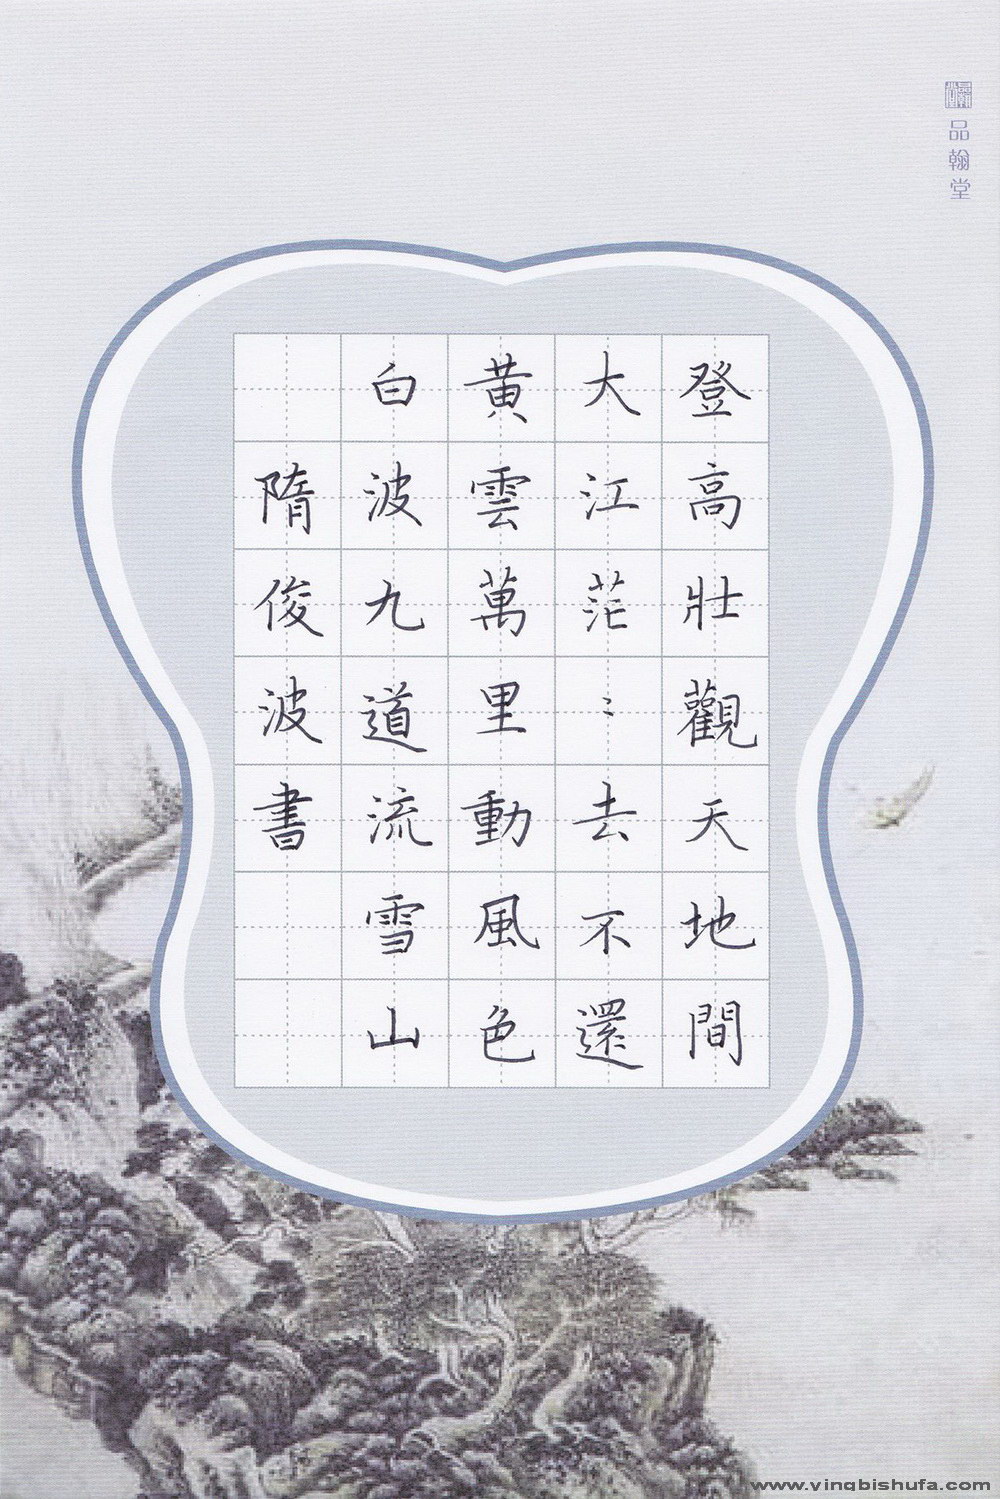 登高壯觀天地間
大江茫〻去不還
黃雲萬里動風色
白波九道流雪山
隋俊波書
品翰堂
www.yingbishufa.com